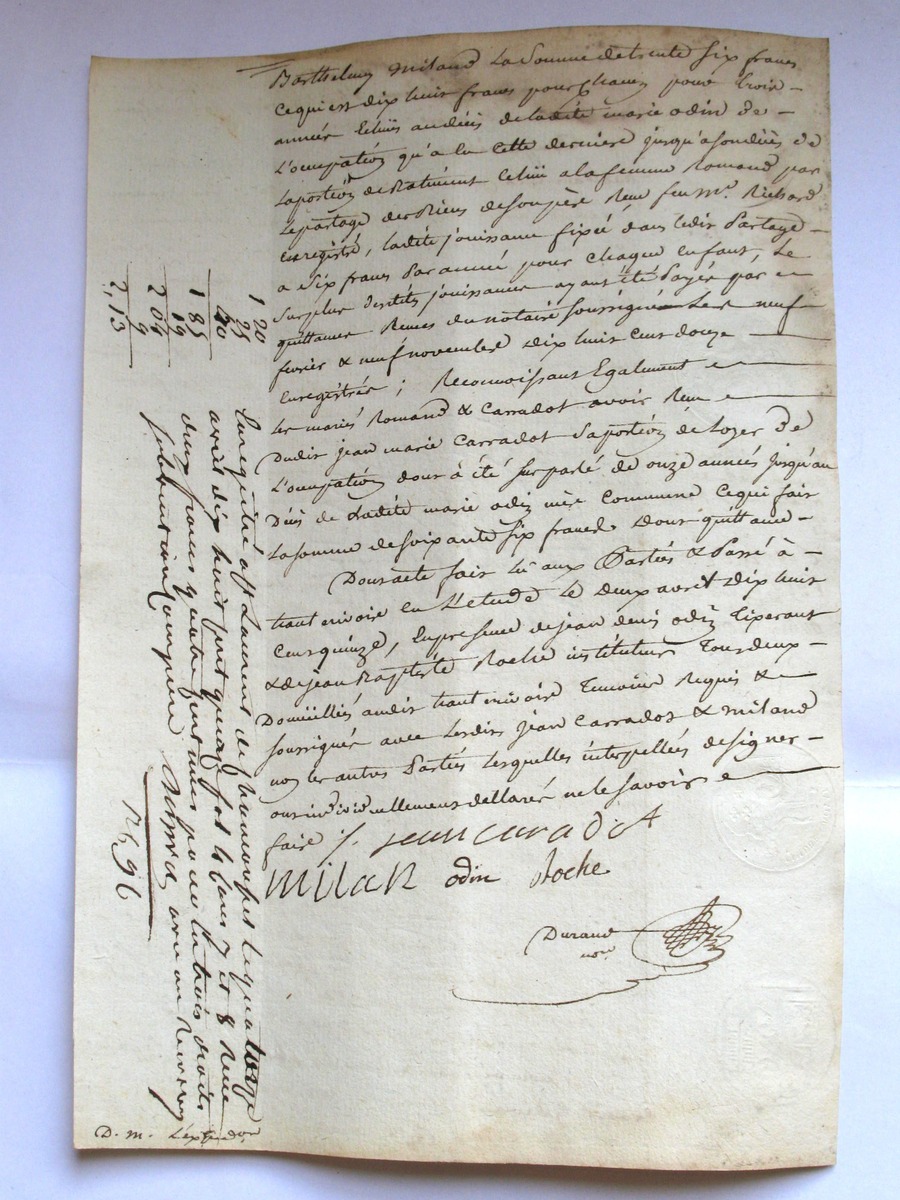 Barthelmy Miland La Somme de trente Six francs
Cequi est dix huit francs pour Chacun pour trois
année Echüs au déces de ladite marie odin de
L'occupation qu'a eu Cette derniere jusqu'a son dècés de
La portion de Batiment Echüe a la femme Romand par
Le partage des Biens de son père Reçu feu Mr. Richard
Enregistré, ladite jouissance fixée dans ledit Partage
a Six francs Par année pour chaque enfant, Le
Surplus desdites jouissances ayant été Payée par
quittances Reçues du notaire soussigné Les neuf
fevrier & neuf novembre dix huit cent douze
Enregistrées ; Reconnoissant Egalement
Les mariés Romand & Carradot avoir Reçu
Dudit jean marie Carradot Sa portion de Loyer de
L'occupation dont à été Sur parlé de onze années jusqu'au
Décés de Ladite marie odin mère Commune Ce qui fait
La somme de soixante six francs Dont quittance
Dont acte fait Lû aux Parties & Passé à
haut rivoire en L'etude Le deux avril dix huit
Cent quinze, En presence de jean denis odin Tixerant
& de jean Baptiste Roche instituteur Tous deux
Domicilliés audit haut rivoire Temoins Requis &
soussignés avec Lesdits jean Carradot & Miland
non les autres Parties Lesquelles interpellées de signer
ont individuellement déclaré ne le savoir
faire /. jean caradot
milan odin Roche
Durand
nore
1 20
25
40
1 85
19
2 04
9
2,13
Enregistré a St Laurent de Chamousset le quatorze
avril dix huit cent quinze fol. 7 et 8 Reçu
deux francs quatre centimes pour les trois droits
subvention Comprise
12, 96
D. M. L'expedon